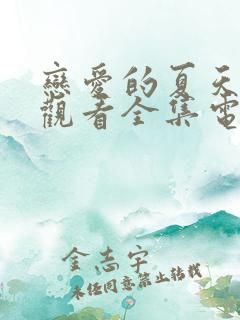 戀愛的夏天
觀看全集電
金志宇
未經同意禁止轉載